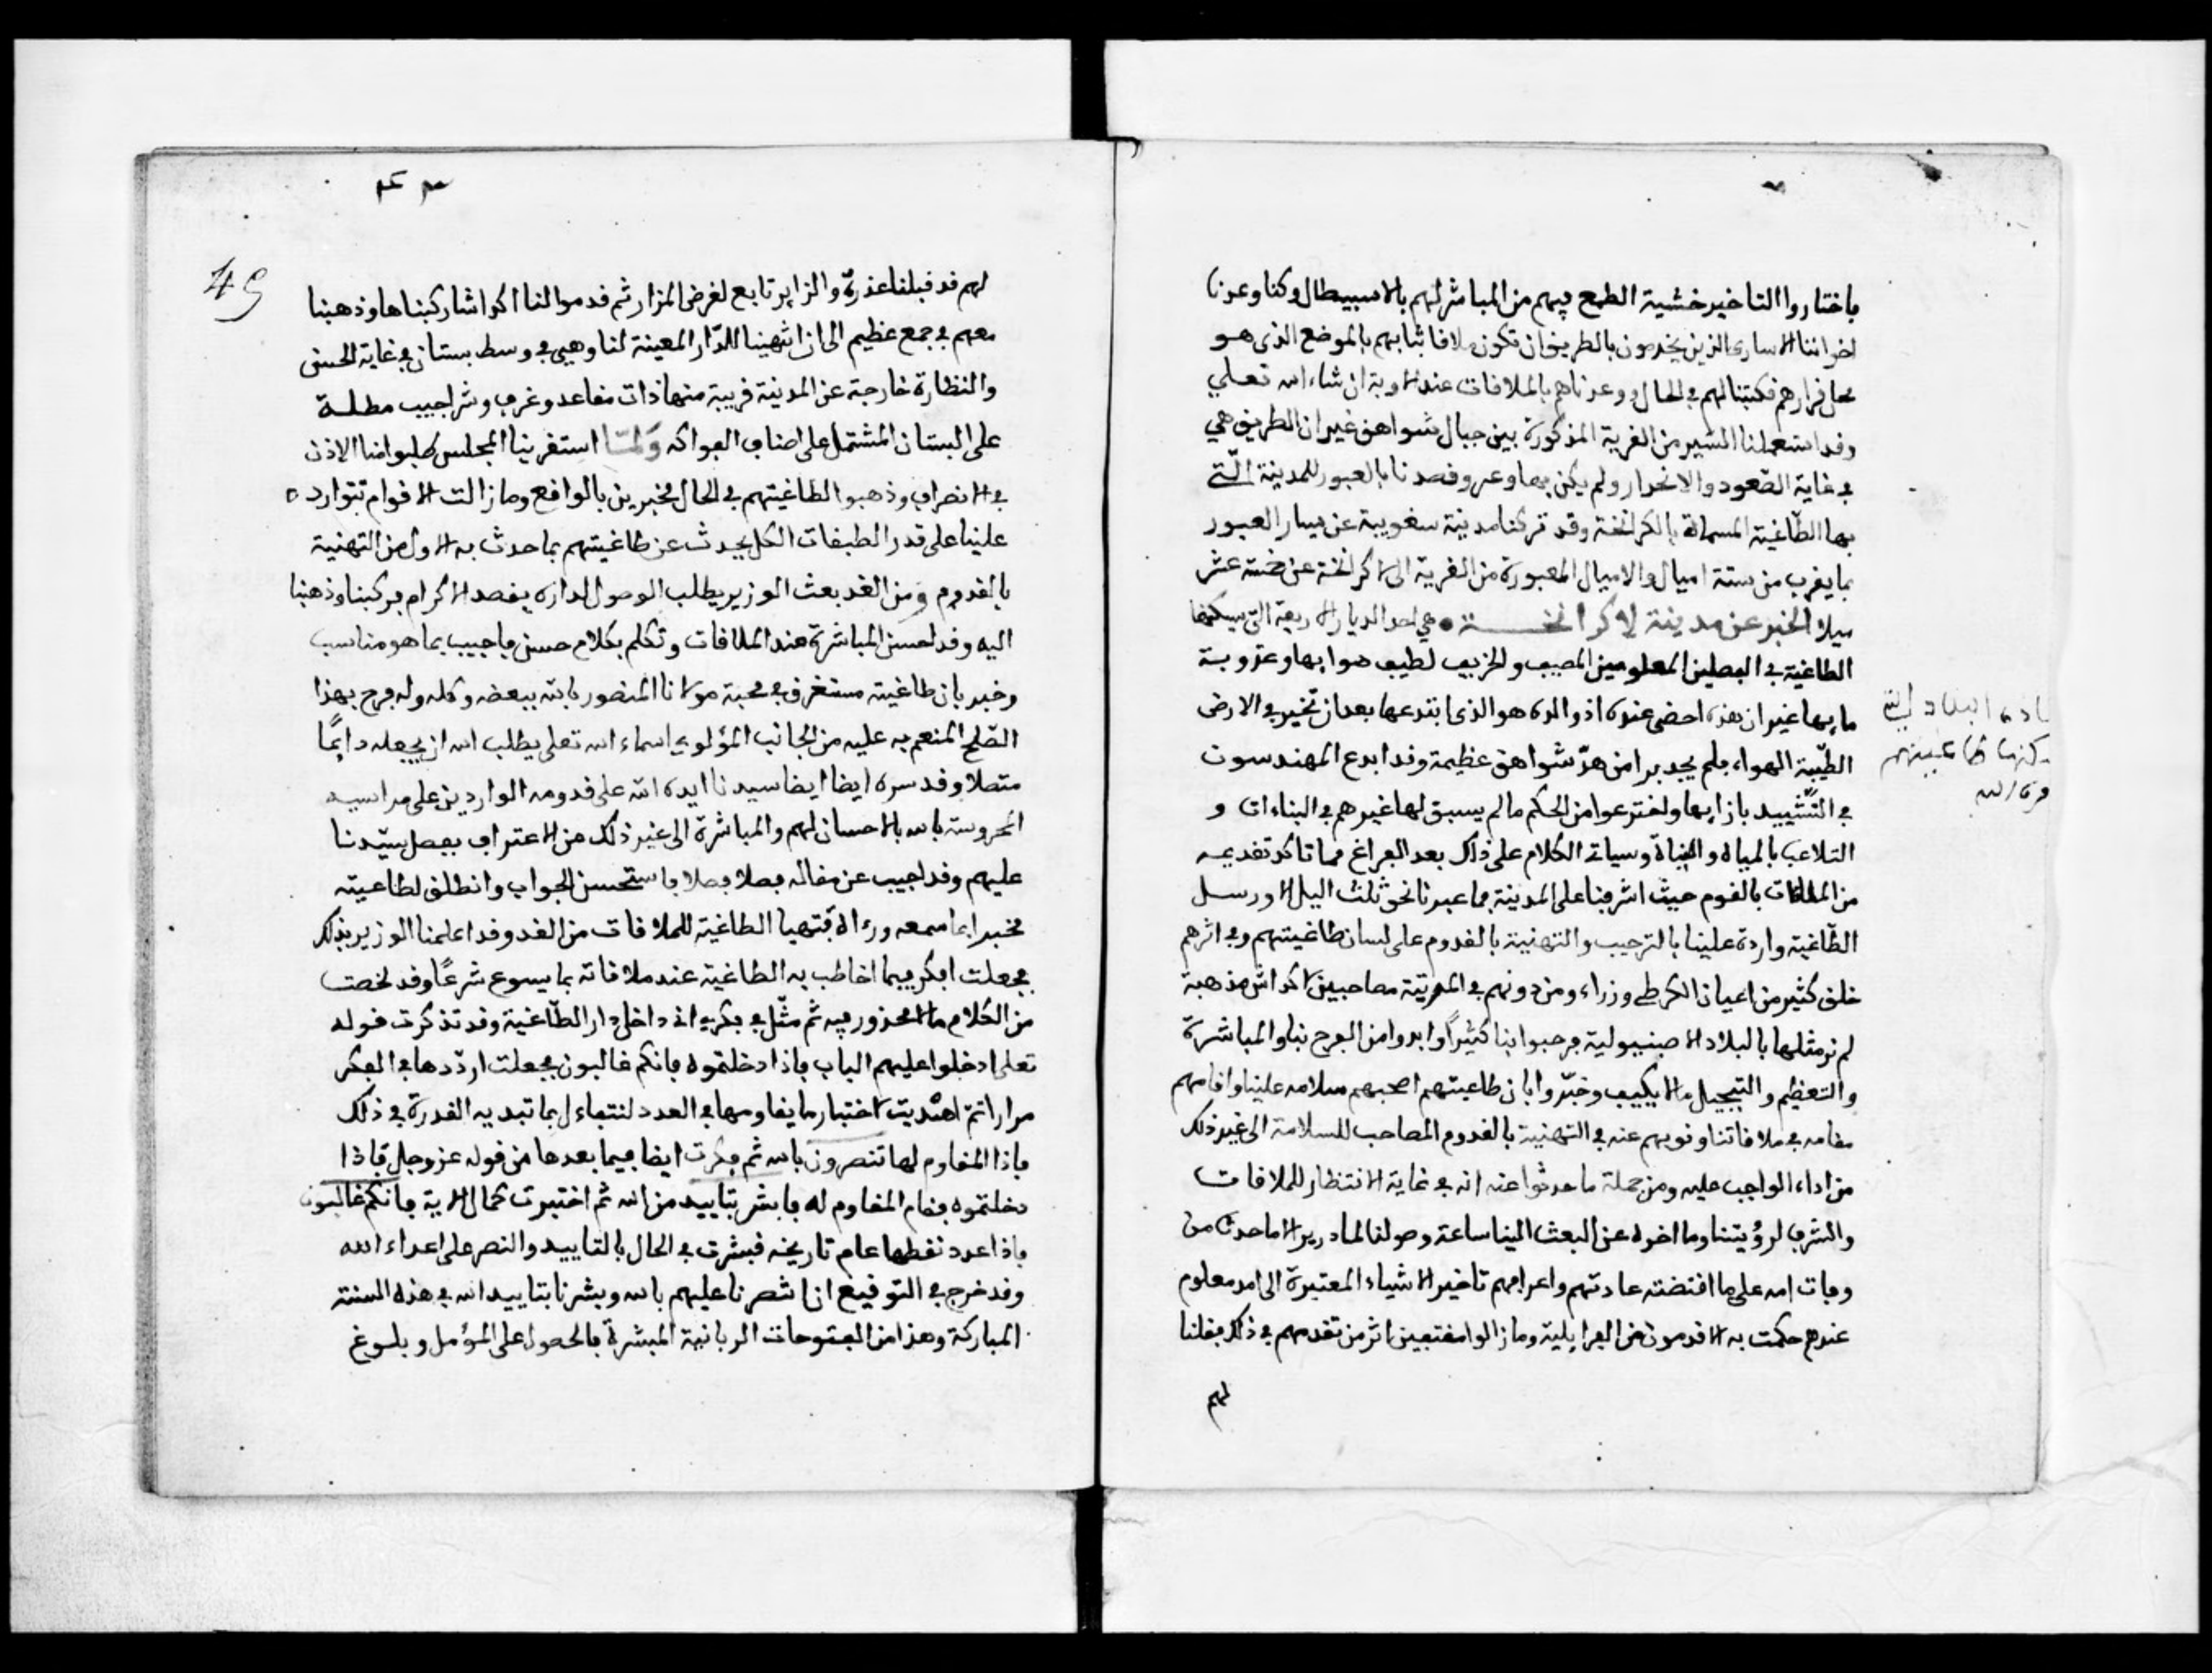 فاختاروا التاخير خشية الطمع فيهم من المباشر لهم بالاسبيطال وكنا وعدنا
اخواننا الاسارى الذين يخدمون بالطريق ان تكون ملاقاتنا بهم بالموضع الذي هو
محل قرارهم فكتبنا لهم في الحال ووعدناهم بالملاقات عند الاوبة ان شاء الله تعلى
وقد استعملنا المسير من القرية المذكورة بين جبال شواهق غير ان الطريق هي
في غاية الصّعود والانحدار ولم يكن بها وعر وقصدنا بالعبور للمدينة الّتي
بها الطّاغية المسماة بالكرانخة وقد تركنا مدينة سغوبية عن يسار العبور
بما يقرب من ستة اميال والاميال المعبورة من القرية الى لاكرانخة عن خمسة عشر
ميلا الخبر عن مدينة لاكرانخة هي احد الديار الاربعة التي يسكنها
الطاغية في الفصلين المعلومين المصيف والخريف لطيف هوايها وعذوبة
مايها غير ان هذه احضى عنده اذ والده هو الذي ابتدعها بعد ان تخير في الارض
الطّيّبة الهواء فلم يجد برا من هدّ شواهق عظيمة وقد ابدع المهندسون
في التّشييد بازايها واخترعوا من الحكم ما لم يسبق لها غيرهم في البناءات و
التلاعب بالمياه والمياه وسياتي الكلام على ذلك بعد الفراغ مما تاكد تقديمه
من الملاقات بالقوم حيث اشرفنا على المدينة فما عبرنا نحو ثلث الميل الا ورسل
الطّاغية واردة علينا بالترحيب والتهنية بالقدوم على لسان طاغيتهم وفي اثرهم
خلق كثير من اعيان الكرطي وزراء ومن دونهم في المرتبة مصاحبين اكداش مذهبة
لم نر مثلها بالبلاد الاصبنيولية فرحبوا بنا كثيرًا وابدوا من الفرح بنا والمباشرة
والتعظيم والتبجيل ما لا يكيف وخبّروا بان طاغيتهم اصحبهم سلامه علينا واقامهم
مقامه في ملاقاتنا ونوبهم عنه في التهنية بالقدوم المصاحب للسلامة الى غير ذلك
من اداء الواجب عليه ومن جملة ما حدثوا عنه انه في غاية الانتظار للملاقات
والتشرف لرؤيتنا وما اخره عن البعث الينا ساعة وصولنا لمادريد الا ما حدث من
وفات امه على ما اقتضته عادتهم واعرافهم تاخير الاشياء المعتبرة الى امد معلوم
عندهم حكمت به الاقدمون من الفرايلية وما زالوا مقتفين اثر من تقدمهم في ذلك فقلنا
لهم
البلاد التي
يسكنها طاغيتهم
45
لهم قد قبلنا عذره والزاير تابع لغرض المزار ثم قدموا لنا اكداشا ركبناها وذهبنا
معهم في جمع عظيم الى ان انتهينا للدّار المعينة لنا وهي في وسط بستان في غاية الحسن
والنظارة خارجة عن المدينة قريبة منها ذات مقاعد وغرف وشراجيب مطلة
على البستان المشتمل على اصناف الفواكه وَلمّا استقر بنا المجلس طلبوا منا الاذن
في الانصراف وذهبوا لطاغيتهم في الحال مخبرين بالواقع وما زالت الاقوام تتوارد
علينا على قدر الطبقات الكل يحدث عن طاغيتهم بما حدث به الاول من التهنية
بالقدوم ومن الغد بعث الوزير يطلب الوصول لداره بقصد الاكرام فركبنا وذهبنا
اليه وقد احسن المباشرة عند الملاقات وتكلم بكلام حسن فاجيب بما هو مناسب
وخبر بان طاغيته مستغرق في محبة مولانا المنصور بالله ببعضه وكله وله فرح بهذا
الصّلح المنعم به عليه من الجانب المؤلوي اسماه الله تعلى يطلب الله ان يجعله دايمًا
متصلا وقد سره ايضا ايضا سيدنا ايده الله على قدومه الواردين على مراسيه
المحروسة بالله بالاحسان لهم والمباشرة الى غير ذلك من الاعتراف بفضل سيّدنا
عليهم وقد اجيب عن مقاله فصلا فصلا فاستحسن الجواب وانطلق لطاغيته
مخبرا بما سمعه ورءاه فتهيا الطاغية للملاقات من الغد وقد اعلمنا الوزير بذلك
فجعلت افكر فيما اخاطب به الطاغية عند ملاقاته بما يسوع شرعًا وقد لخصت
من الكلام ما لا محذور فيه ثم مثّل في فكري اني داخل دار الطّاغية وقد تذكرت قوله
تعلى ادخلوا عليهم الباب فاذا دخلتموه فانكم غالبون فجعلت اردّدها في الفكر
مرارا ثمّ اهتديت لاختبار ما يقاومها في العدد لنتفاءل بما تبديه القدرة في ذلك
فاذا المقاوم لها تنصرون بالله ثم فكرت ايضا فيما بعدها من قوله عز وجل فاذا
دخلتموه فقام المقاوم له فابشر بتاييد من الله ثم اختبرت كمال الاية فانكم غالبون
فاذا عدد نقطها عام تاريخه فبشرت في الحال بالتاييد والنصر على اعداء الله
وقد خرج في التوقيع انا نصرنا عليهم بالله وبشرنا بتاييد الله في هذه السنة
المباركة وهذا من الفتوحات الربانية المبشرة بالحصول على المؤمل وبلوغ